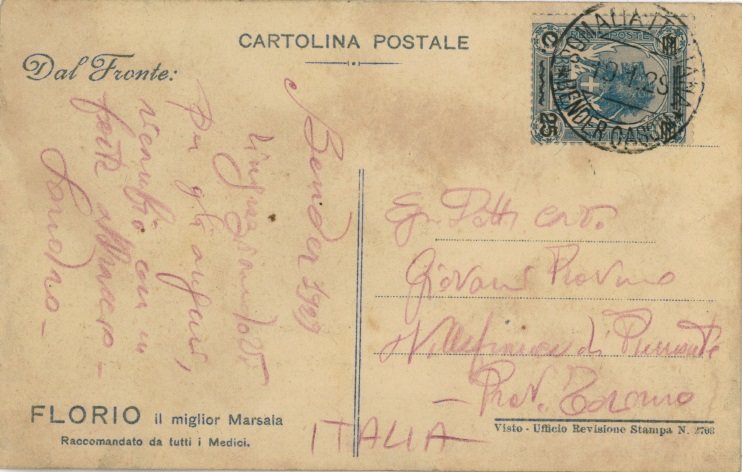 CARTOLINA POSTALE
Dal Fronte:
SOMALIA ITALIANA
19.1.29
BENDER CASSIM
POSTE
C. 25
Bender 1929
ringraziandoti
per gli auguri,
con un
forte abbraccio -
Sandro -
Giovanni
Villafranca di Piemonte
- Prov. Torino
ITALIA
FLORIO il miglior Marsala
Raccomandato da tutti i Medici.
Visto - Ufficio Revisione Stampa N. 2703